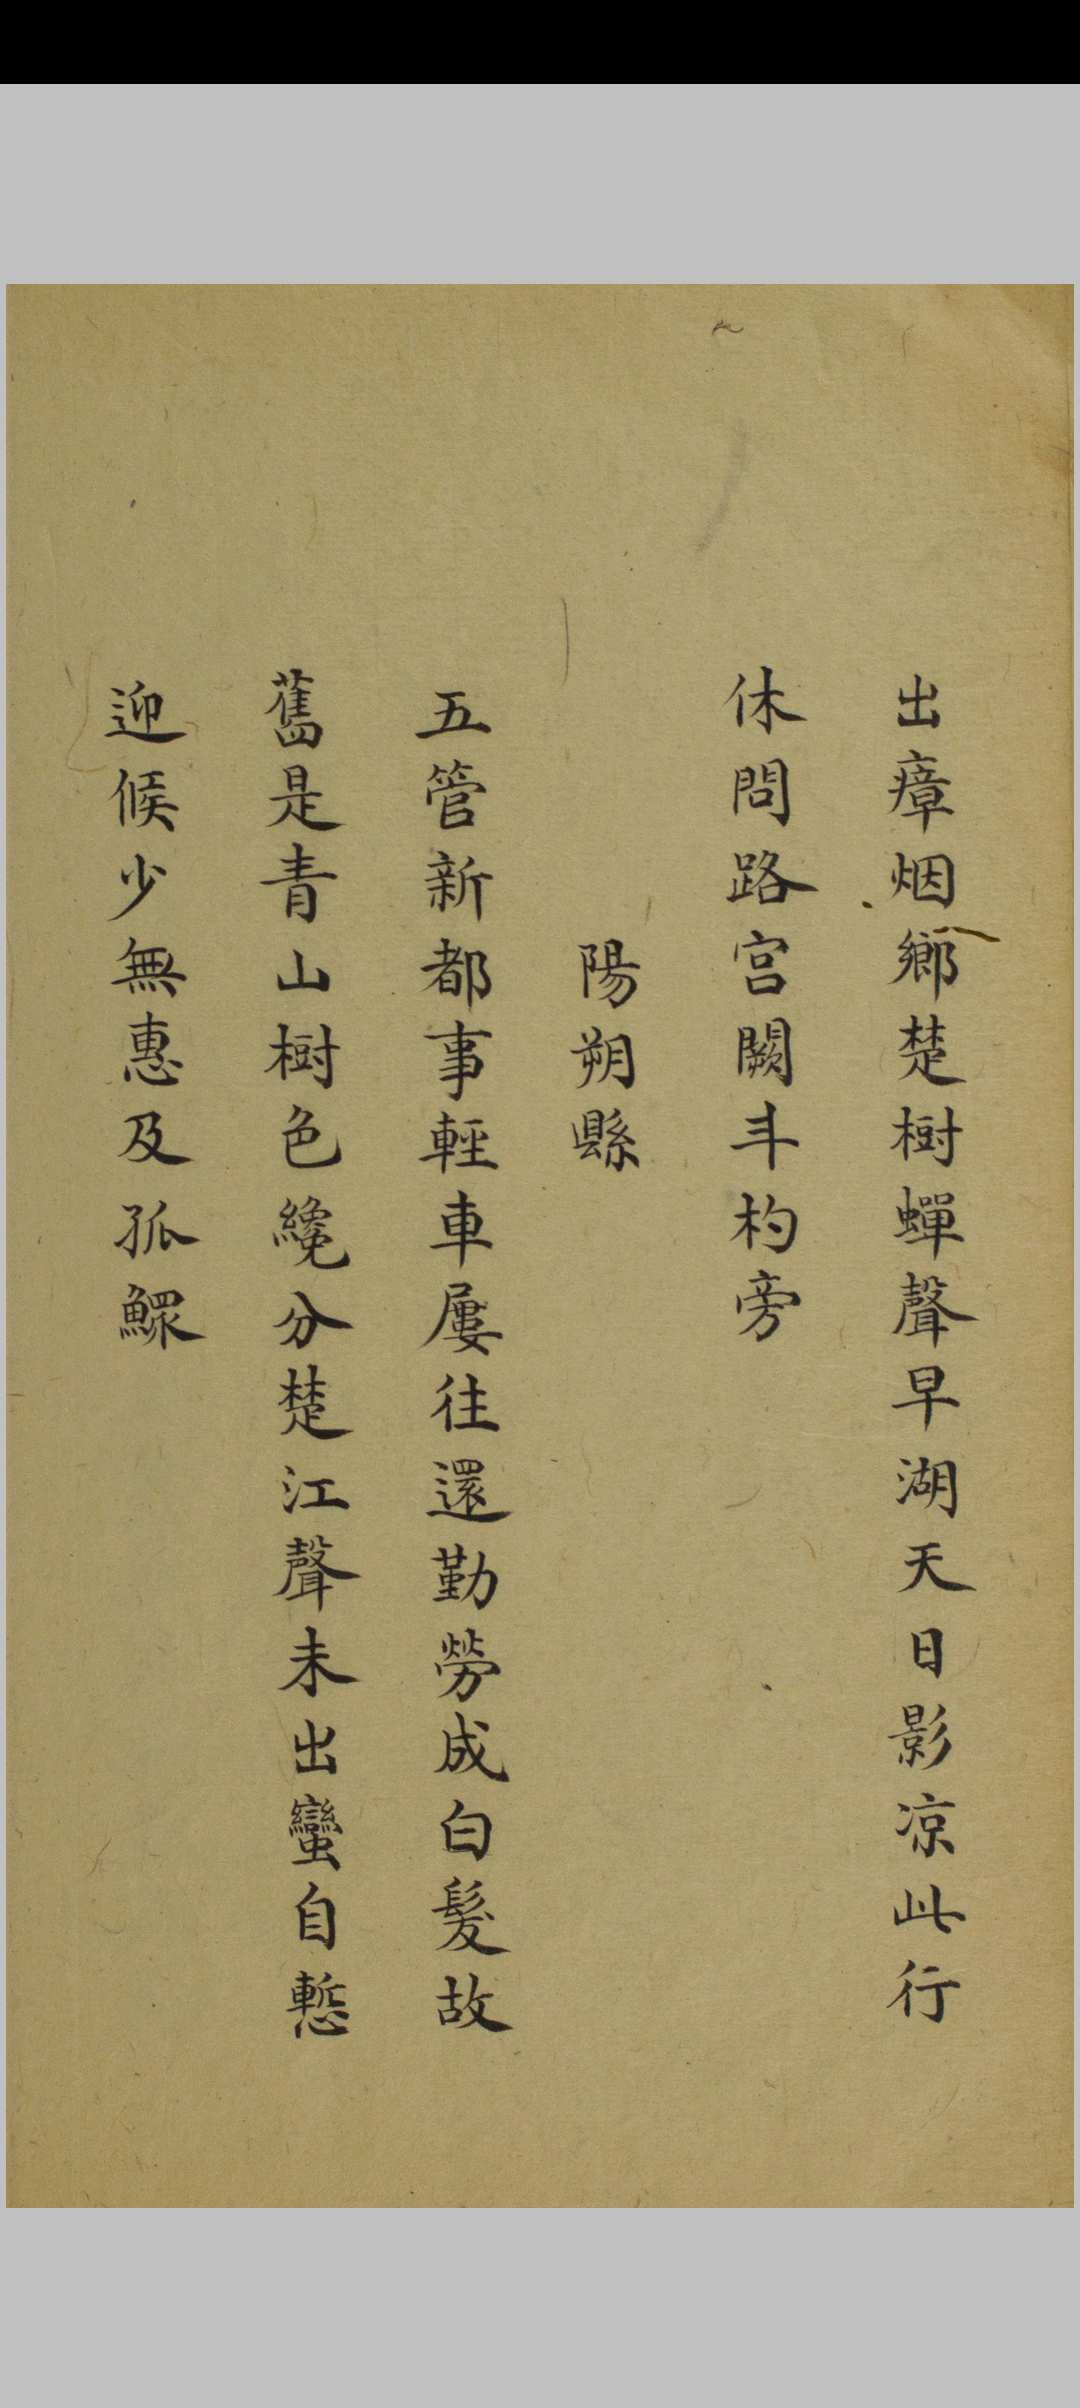 出瘴烟鄉楚樹蟬聲早湖天日影凉此行
休問路宫闕斗杓旁
陽朔縣
五管新都事輕車屢往還勤勞成白髮故
舊是青山樹色纔分楚江聲未出蠻自慙
迎候少無惠及孤鰥